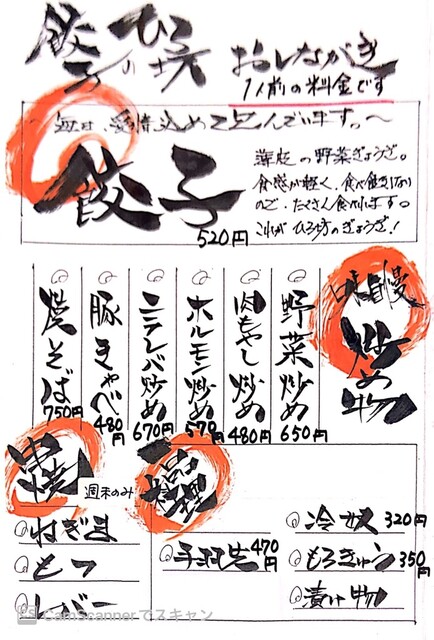 餃子の ひろ坊
おしながき
1人前の料金です
〜毎日、愛情込めて包んでいます。〜
餃子
520円
薄皮の野菜ぎょうざ。
食感が軽く、食べ飽きしない
ので、たくさん食べれます。
これが ひろ坊のぎょうざ!
味自慢
炒め物
野菜炒め 650円
肉もやし炒め 480円
ホルモン炒め 570円
ニラレバ炒め 670円
豚キャベ 480円
焼そば 750円
串焼
週末のみ
ねぎま
もつ
レバー
一品料理
手羽先 470円
冷奴 320円
もろきゅう 350円
漬け物
CamScannerでスキャン